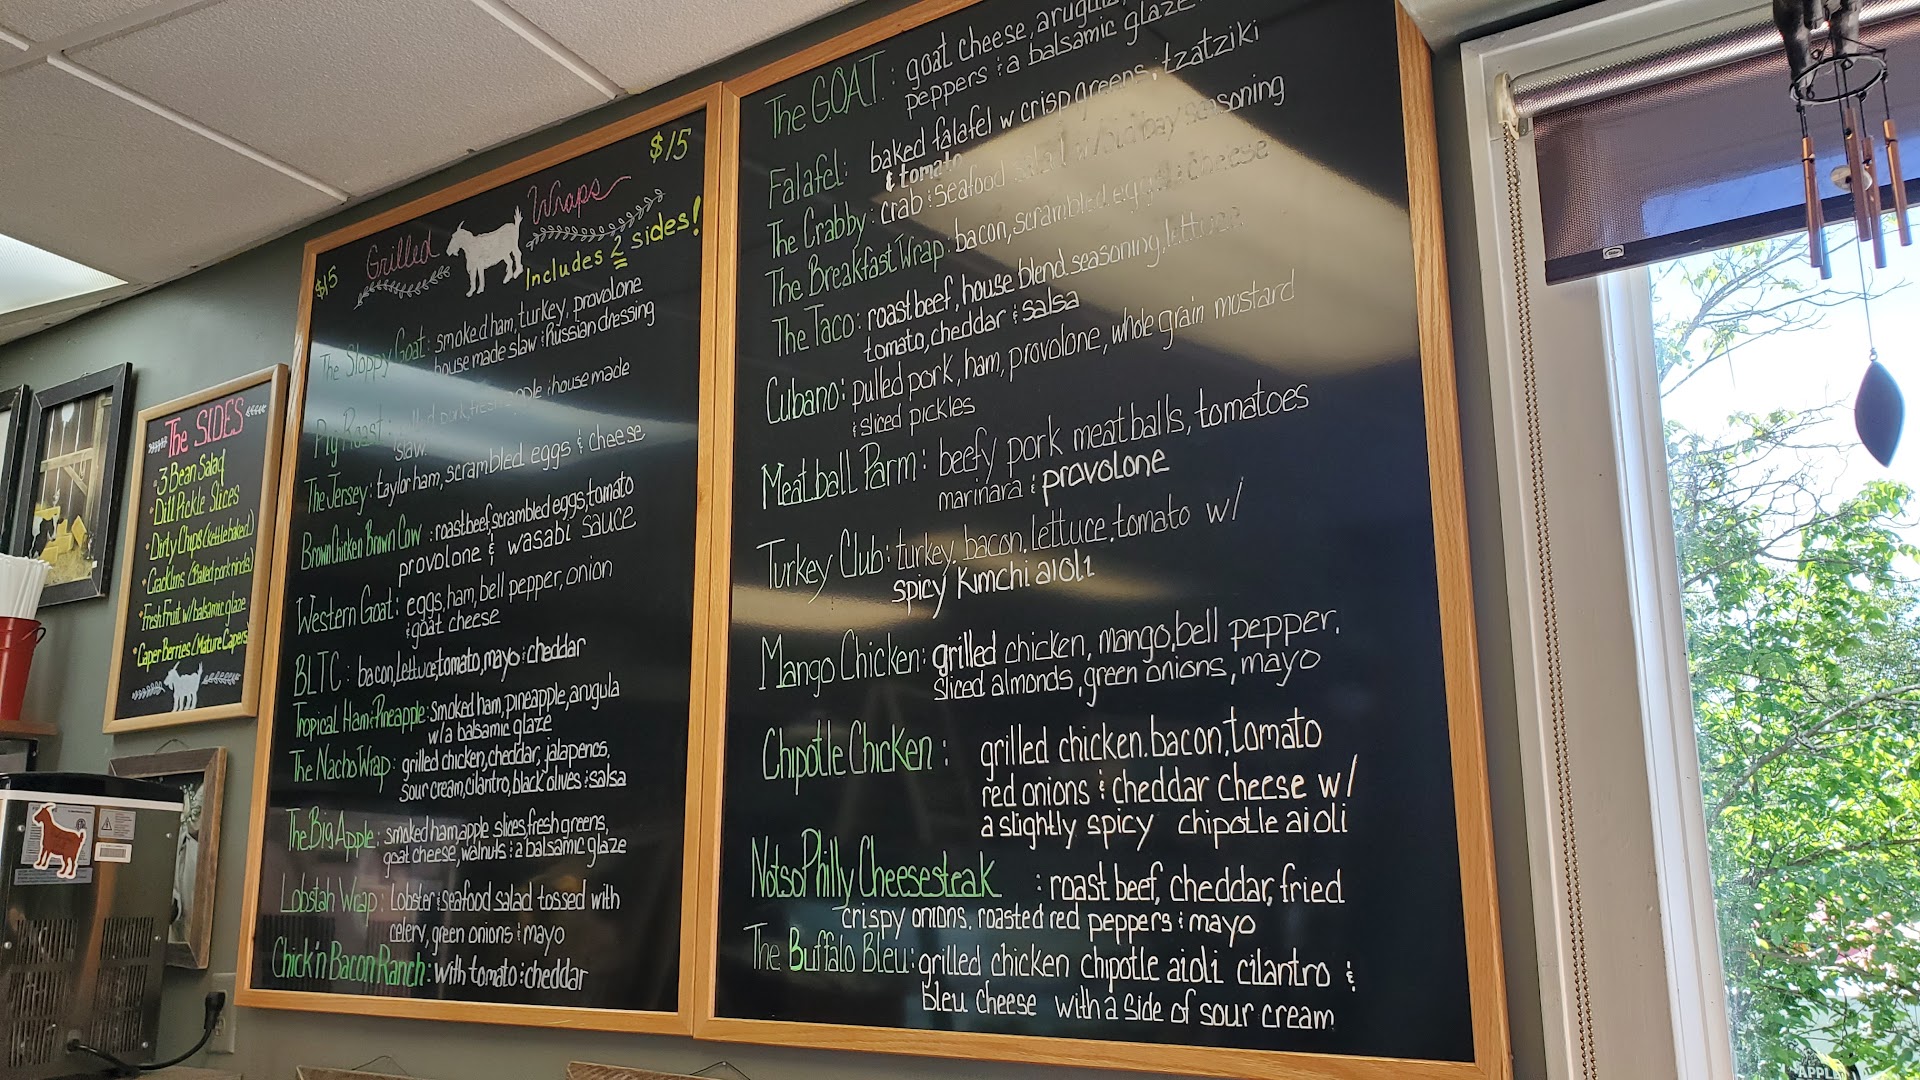 The SIDES
3 Bean Salad
Dill Pickle Slices
Dirty Chips (kettle baked)
Cracklins (Baked pork rinds)
Fresh Fruit w/balsamic glaze
Caper Berries (Mature Capers)
$15
$15
Grilled Wraps
Includes 2 sides!
The Sloppy Goat: smoked ham, turkey, provolone
house made slaw & Russian dressing
Pig Roast: pulled pork, fresh apple & house made
slaw
The Jersey: taylor ham, scrambled eggs & cheese
Brown Chicken Brown Cow: roast beef, scrambled eggs, tomato
provolone & wasabi sauce
Western Goat: eggs, ham, bell pepper, onion
& goat cheese
BLTC: bacon, lettuce, tomato, mayo & cheddar
Tropical Ham & Pineapple: Smoked ham, pineapple, arugula
w/a balsamic glaze
The Nacho Wrap: grilled chicken, cheddar, jalapenos,
sour cream, cilantro, black olives & salsa
The Big Apple: smoked ham, apple slices, fresh greens,
goat cheese, walnuts & a balsamic glaze
Lobstah Wrap: Lobster & seafood salad tossed with
celery, green onions & mayo
Chick'n Bacon Ranch: with tomato & cheddar
The G.O.A.T.: goat cheese, arugula,
peppers & a balsamic glaze
Falafel: baked falafel w crisp greens, tzatziki
& tomato
The Crabby: crab & seafood salad w/old bay seasoning
The Breakfast Wrap: bacon, scrambled eggs & cheese
The Taco: roast beef, house blend seasoning, lettuce
tomato, cheddar & salsa
Cubano: pulled pork, ham, provolone, whole grain mustard
& sliced pickles
Meatball Parm: beefy pork meatballs, tomatoes
marinara & provolone
Turkey Club: turkey, bacon, lettuce, tomato w/
spicy kimchi aioli
Mango Chicken: grilled chicken, mango, bell pepper,
sliced almonds, green onions, mayo
Chipotle Chicken: grilled chicken, bacon, tomato
red onions & cheddar cheese w/
a slightly spicy chipotle aioli
Notso Philly Cheesesteak: roast beef, cheddar, fried
crispy onions, roasted red peppers & mayo
The Buffalo Bleu: grilled chicken chipotle aioli cilantro &
bleu cheese with a side of sour cream